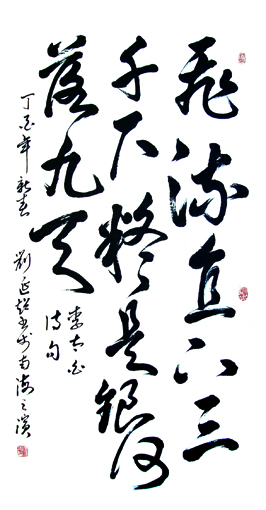 飛流直下三
千尺疑是銀河
落九天
李太白
詩句
丁酉年新春 劉延書於南海之濱